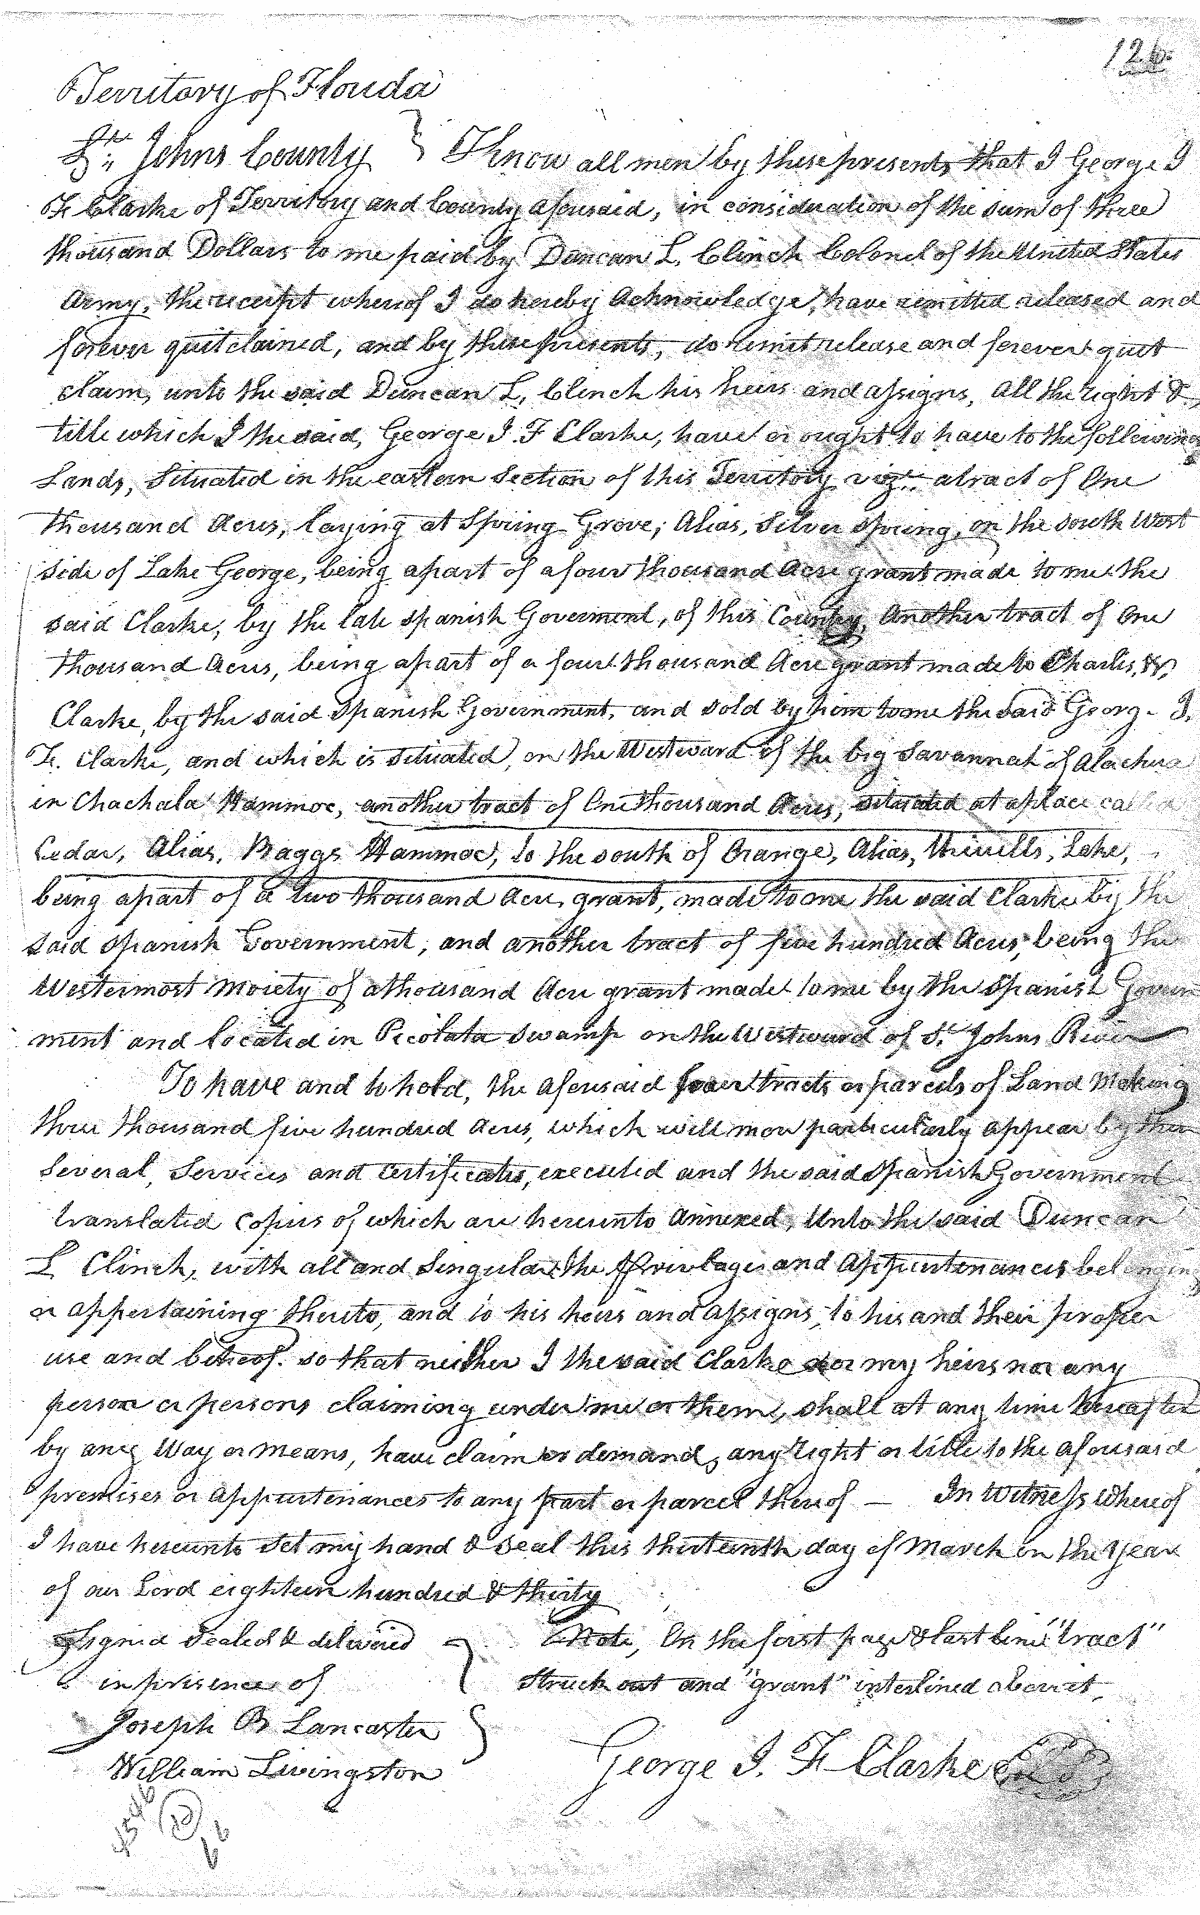 126.
Territory of Florida
St. Johns County } Know all men by these presents, that I George I
F. Clarke of Territory and County aforesaid, in consideration of the sum of three
thousand Dollars to me paid by Duncan L. Clinch Colonel of the United States
Army, the receipt whereof I do hereby acknowledge, have remitted released and
forever quitclaimed, and by these presents, do remit release and forever quit
claim, unto the said Duncan L. Clinch his heirs and assigns, all the right &
title which I the said, George I. F Clarke, have or ought to have to the following
Lands, Situated in the eastern Section of this Territory vizt. a tract of One
thousand Acres, laying at Spring Grove; Alias, Silver Spring, on the South West
side of Lake George, being apart of a four thousand Acre grant made to me the
said Clarke, by the late Spanish Goverment, of this Country, Another tract of One
thousand Acres, being apart of a four thousand Acre grant made to Charles, W.
Clarke, by the said Spanish Government, and sold by him to me the said George I.
F. Clarke, and which is situated, on the Westward of the big Savannah of Alachua
in Chachala Hammoc, another tract of One thousand Acres, situated at a place called
Cedar, Alias, Braggs Hammoc, to the south of Orange, Alias, Lake,
being apart of a two thousand Acre grant, made to me the said Clarke by the
said Spanish Government, and another tract of five hundred Acres, being the
Westermost Moiety of a thousand Acre grant made to me by the Spanish Govern
ment and located in Picolata Swamp on the Westward of St. Johns River
To have and to hold, the aforesaid four tracts or parcels of Land Making
three thousand five hundred Acres, which will more particularly appear by the
Several, Services and Certificates, executed and the said Spanish Government
translated Copies of which are hereunto Annexed, Unto the said Duncan
L Clinch, with all and Singular the privlages and Appurtenances belonging
or appertaining thereto, and to his heirs and assigns, to his and their proper
use and behoof. so that neither I the said Clarke nor my heirs nor any
person or persons claiming under me or them, shall at any time hereafter
by any Way or means, have claim or demand, any right or title to the aforesaid
premises or appurtenances to any part or parcel thereof — In Witness whereof
I have hereunto Set my hand & Seal this thirteenth day of March in the Year
of our Lord eighteen hundred & thirty
Signed Sealed & delivered } Note, On the first page & last line "tract"
in presence of Struck out and "grant" interlined above it,
Joseph B Lancaster }
William Livingston George I. F Clarke